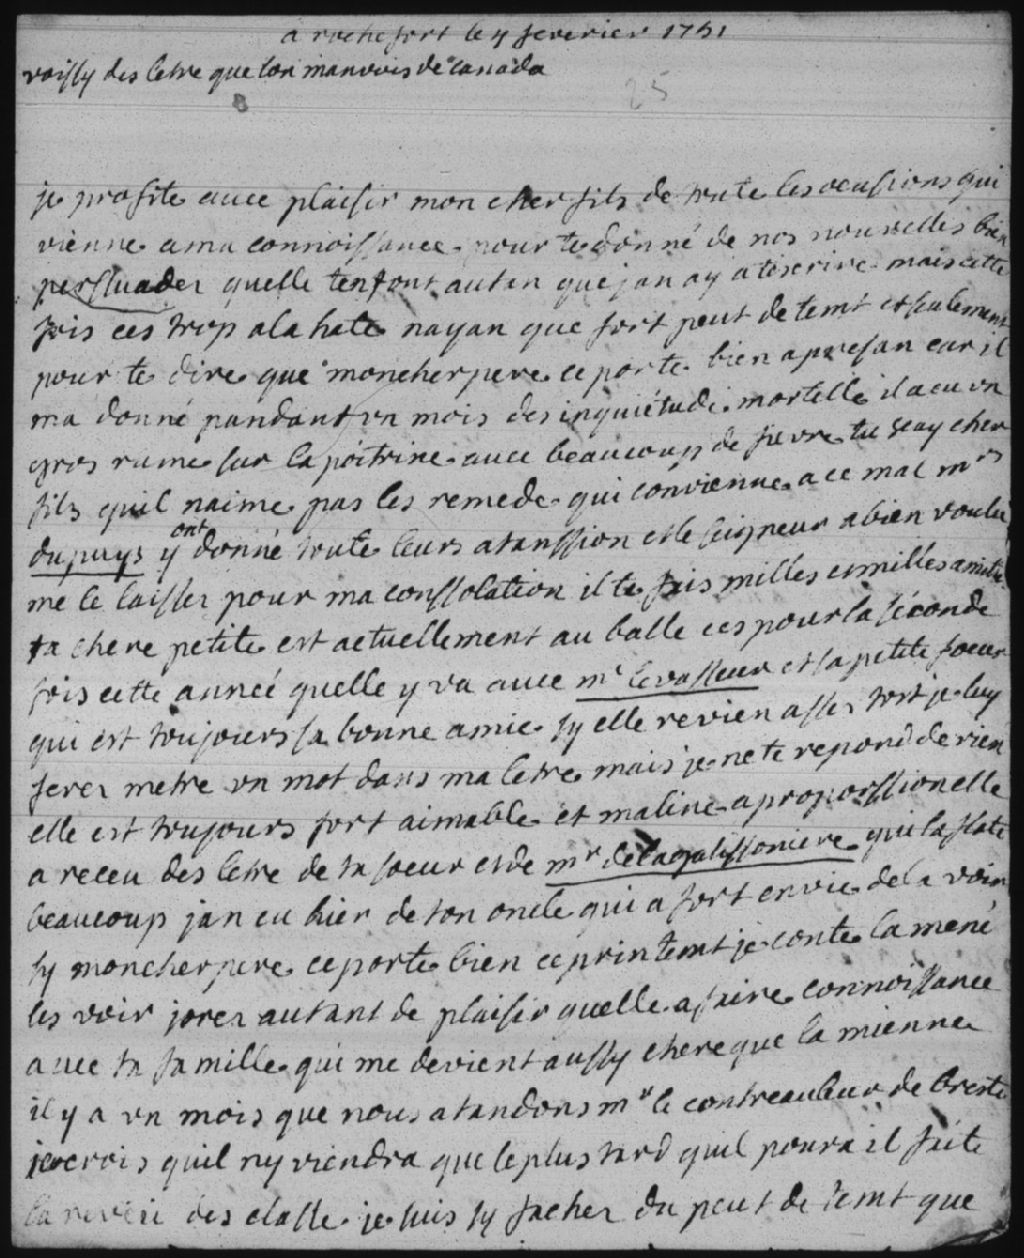 a rochefort le 4 feverier 1751
voissy des letre que lon manvois de canada
25
je profite avec plaisir mon cher fils de toute les ocasions qui
vienne a ma connoissance pour te donné de nos nouvelles bien
persuader quelle tenfont autan que jan ay a tescrire mais cette
fois ces trop a la hate nayan que fort peut de temt et seulement
pour te dire que mon cher pere ce porte bien apresan car il
ma donné pandant un mois des inquiétude mortelle il a eu un
gros rume sur la poitrine avec beaucoup de fievre tu scay cher
fils quil naime pas les remede qui convienne a ce mal mrs
dupuys y ont donné toute leurs atanssion et le seigneur a bien voulu
me le laisser pour ma conssolation il te fais milles et milles amitié
ta chere petite est actuellement au balle ces pour la séconde
fois cette anneé quelle y va avec mr levasseur et sa petite soeur
qui est toujours sa bonne amie sy elle revien asser tost je luy
ferer metre un mot dans ma letre mais je ne te repond de rien
elle est toujours fort aimable et maline a proporssion elle
a receu des letre de ta soeur et de mr de lagalissoniere qui la flate
beaucoup jan eu hier de ton oncle qui a fort envie de la voir
sy mon cher pere ce porte bien ce printemt je conte la mené
les voir jorer autant de plaisir quelle a faire connoissance
avec ta famille qui me devient aussy chere que la mienne
il y a un mois que nous atandons mr le contreauleur de breste
je crois quil ny viendra que le plus tard quil poura il faite
la reveü des classe je suis sy facher du peut de temt que